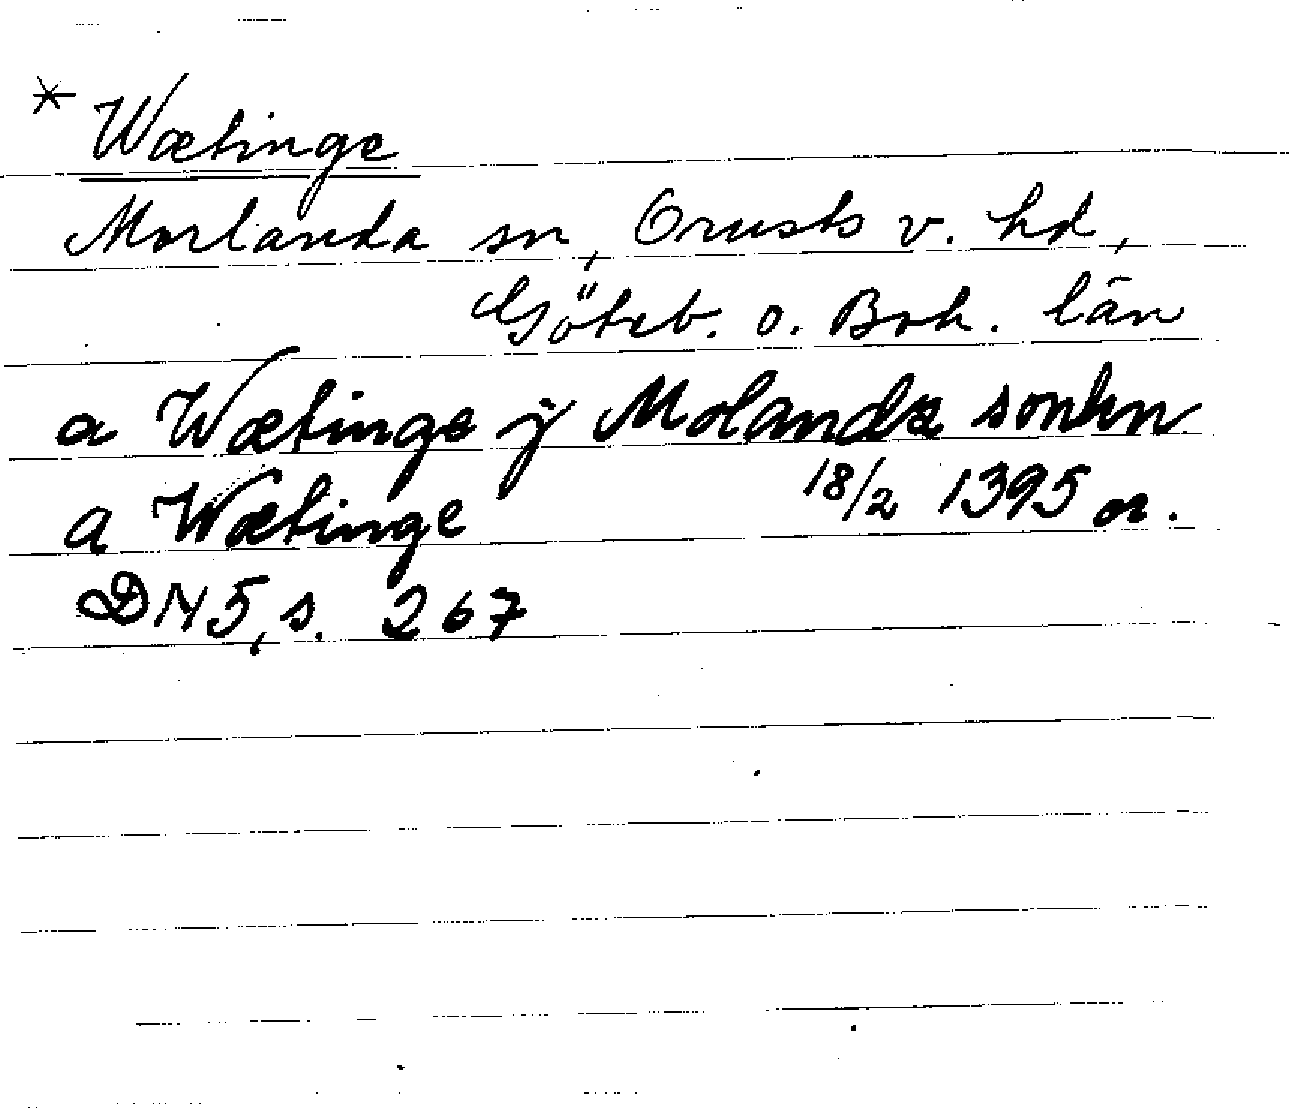 * Wætinge
Morlanda sn, Orusts v. hd,
Göteb. o. Boh. län
a Wætinge j Molanda sonkn
a Wætinge 18/2 1395 or.
DN 5, s. 267